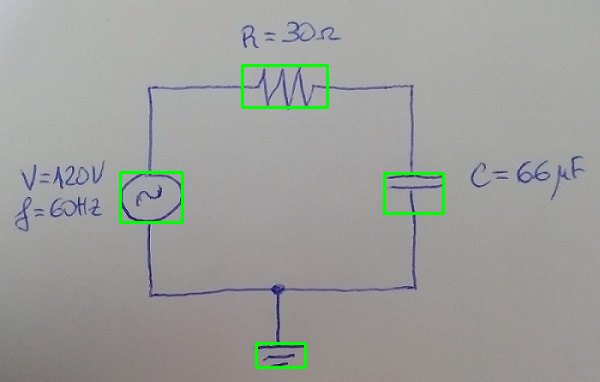 R = 30Ω
V=120V
f=60Hz
C = 66 μF